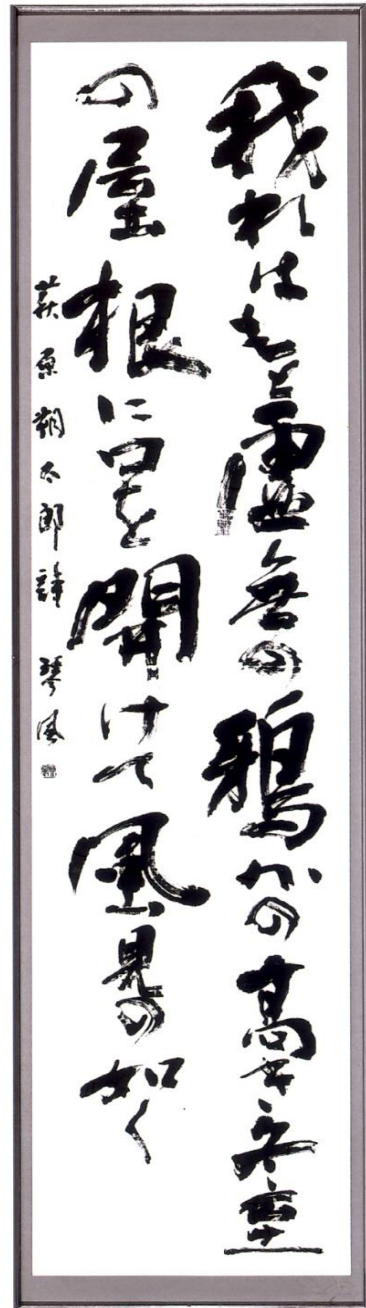 我れはもと虚無の鴉かの高き冬至
の屋根に口を開けて風見の如く
萩原朔太郎詩 琴風